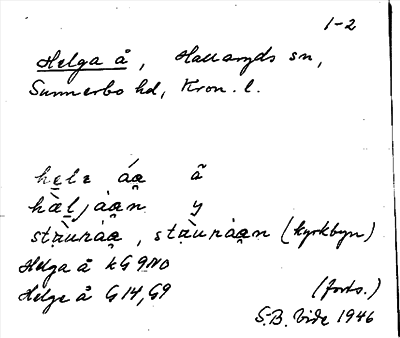 1-2
Helga å, Hallaryds sn,
Sunnerbo hd, Kron. l.
helɛ áa̰ ã
hæ̀ljàa̰n y
stæ̀uráa̰, stæ̀uràa̰n (kyrkbyn)
Helga å kG 9NO
Helge å G14, G9 (forts.)
S.B. Vide 1946